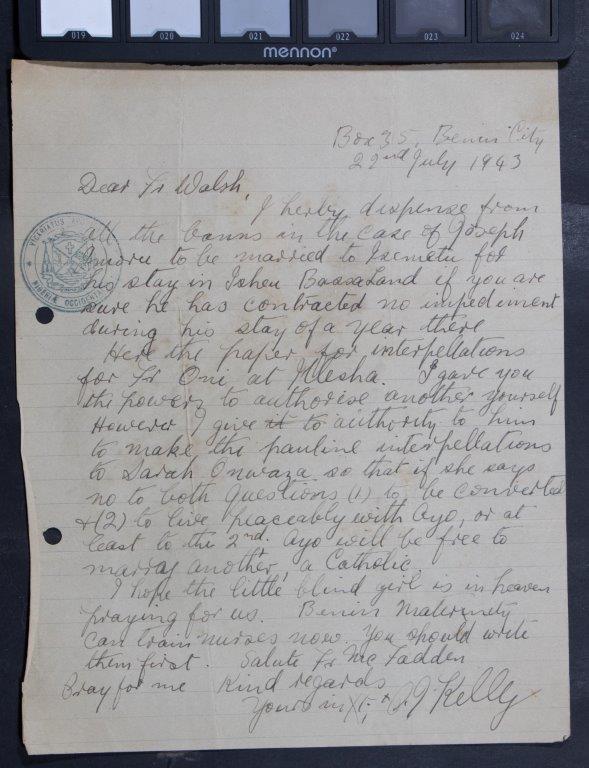 019 020 021 022 023 024
mennon®
Box 35, Benin City
22nd July 1943
Dear Fr Walsh,
I herby dispense from
all the banns in the case of Joseph
to be married to Izematu for
his stay in Isheu Land if you are
sure he has contracted no impediment
during his stay of a year there
Here the paper for interpellations
for Fr Oni at Ilesha. I gave you
the powers to authorise another yourself
However I give it to authority to him
to make the pauline interpellations
to Sarah Onwaza so that if she says
no to both Questions (1) to be converted
+ (2) to live peaceably with Ayo, or at
least to the 2nd. Ayo will be free to
marray another, a Catholic.
I hope the little blind girl is in heaven
praying for us. Benin Maternity
can train nurses now. You should write
them first. Salute Fr Mc Fadden
Pray for me Kind regards
Yours in Xt, + P J Kelly
VICARIATUS
NIGERIAE OCCIDENTALIS